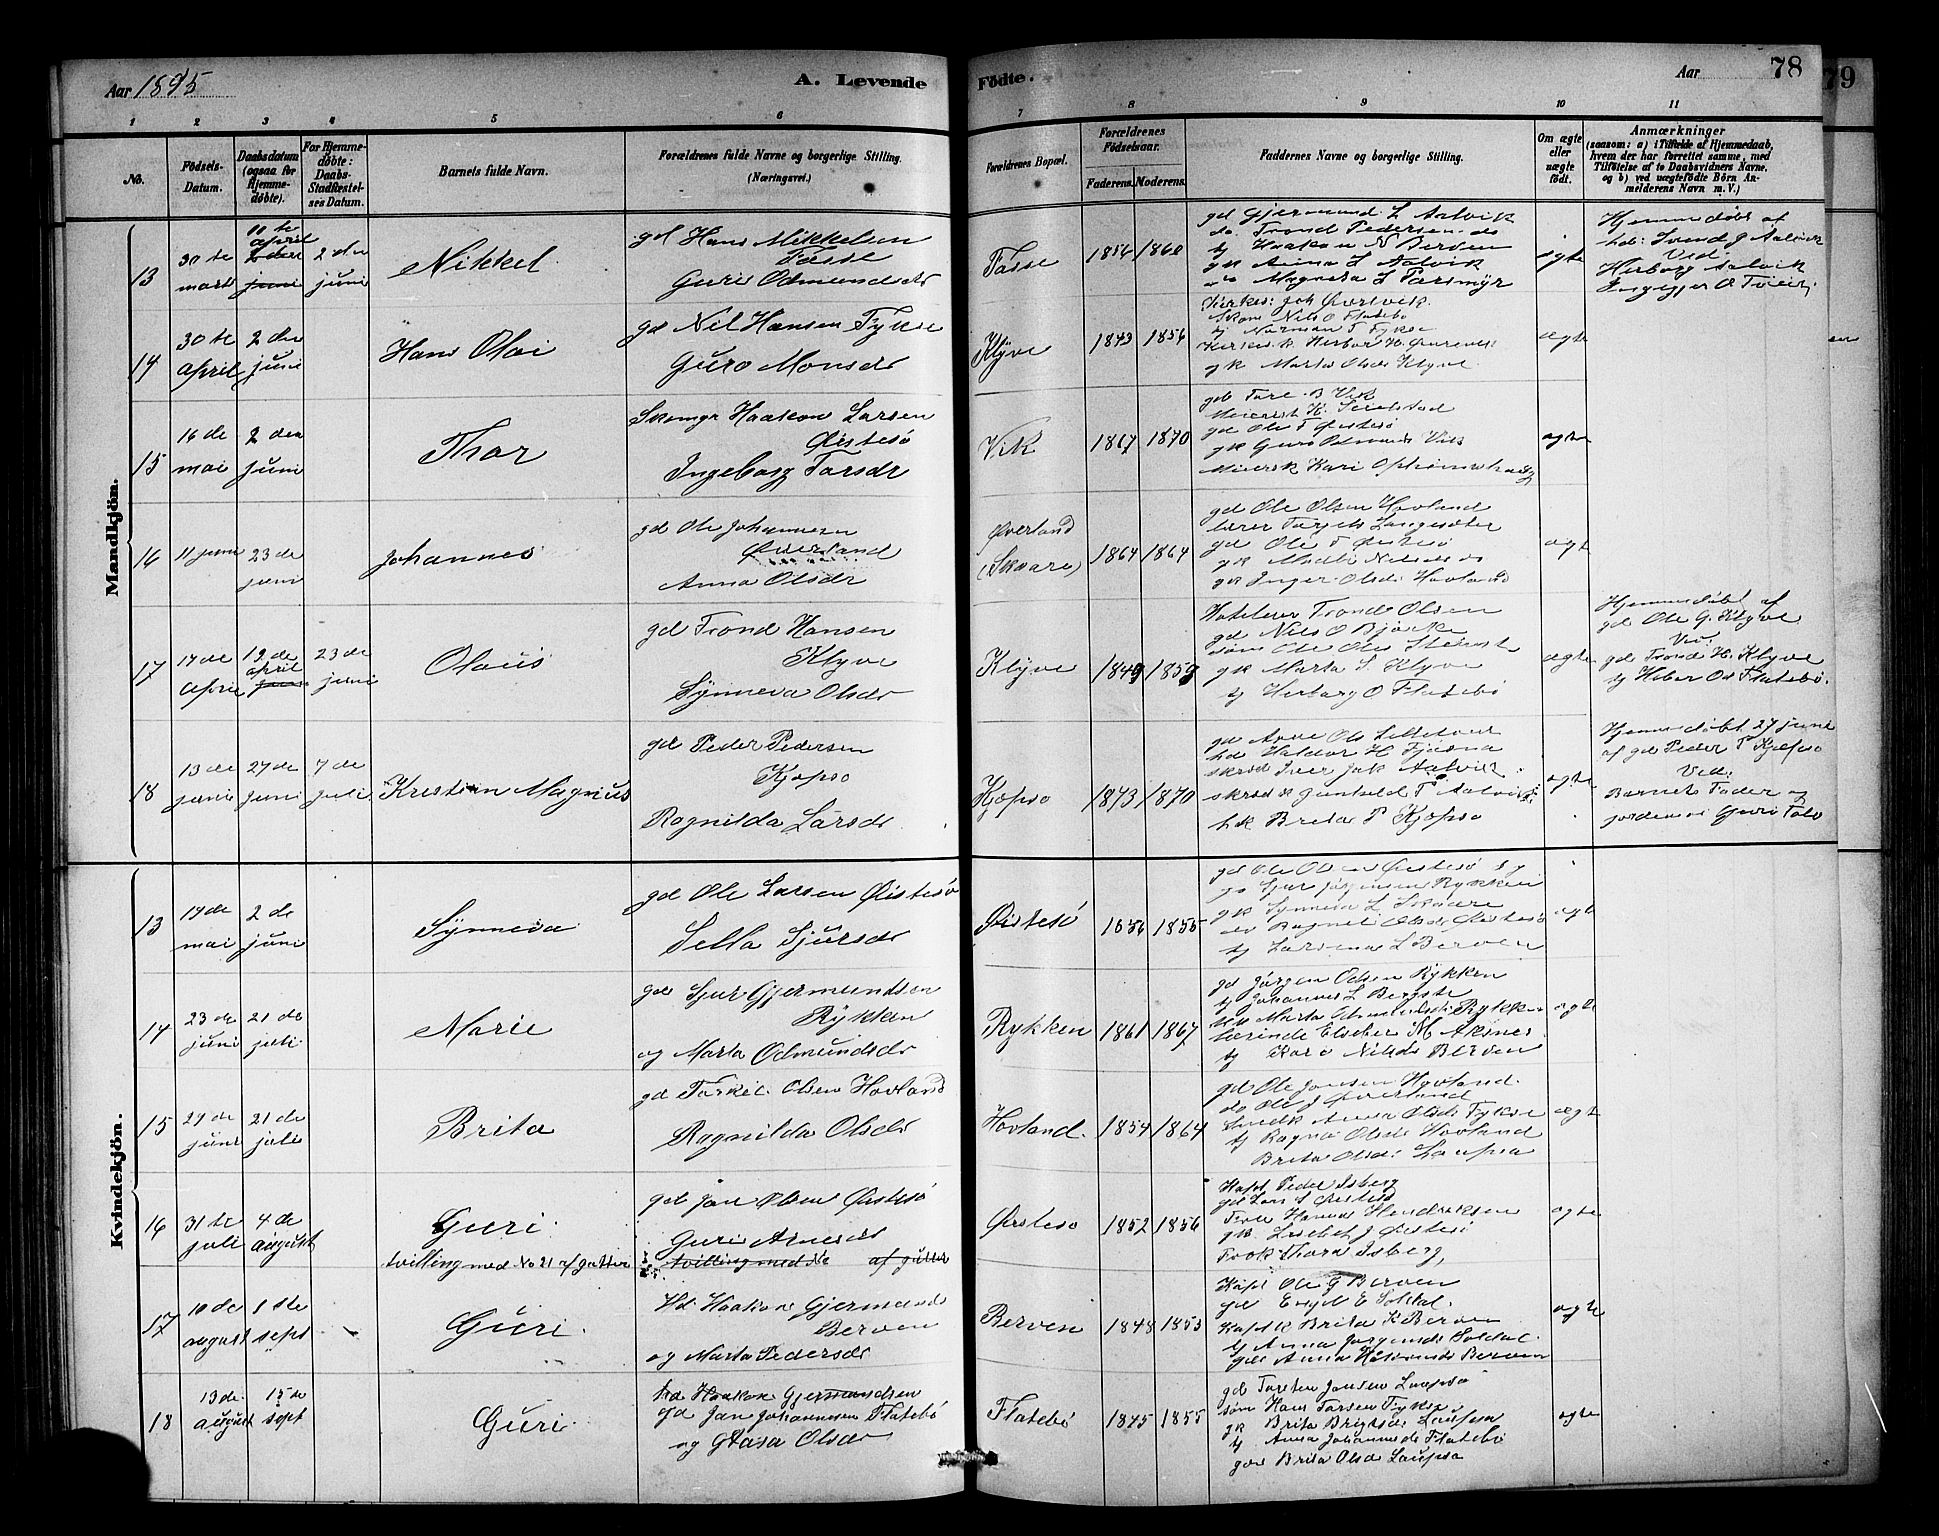 Aar 1895
A. Levende
Fødte.
Aar
78
79
1 2 3 4 5 6 7 8 9 10 11
No.
Fødsels-Datum.
Daabsdatum (ogsaa for Hjemmedøbte).
For Hjemmedøbte: Daabs-Stadfæstelses Datum.
Barnets fulde Navn.
Forældrenes fulde Navne og borgerlige Stilling. (Næringsvei.)
Forældrenes Bopæl.
Forældrenes Fødselsaar.
Faderens. Moderens.
Faddernes Navne og borgerlige Stilling.
Om ægte eller uægte født.
Anmærkninger
(saasom: a) i Tilfælde af Hjemmedaab, hvem der har forrettet samme, med Tilføielse af to Daabsvidners Navne, og b) ved uægtefødte Børn Anmelderens Navn m. V.)
Mandkjøn.
13
30 te mart
11 te april
juni
2 den juni
Nikkel
gd Hans Mikkelsen
Fosse
Guri Odmundsdr
Fosse
1856 1860
gd Gjermund L Aalvik
do. Trond Pedersen do
tj Haakon N Berven
gk Anna L Aalvik
Magnela L
ægte
Hjemmedøbt af
hd: Svend J Aalvik
Ved:
Herborg Aalvik
Ingegjer O
14
30 te april
2 den juni
Hans Olai
gd Nil Hansen Fykse
Guro Monsdr
Klyve
1843 1856
Nils O Flatebø
tj Norman T Fykse
gk Marta Olsdr Klyve
ægte
15
16 de mai
2 den juni
Thor
Skomgr Haakon Larsen
Østesø
Ingeborg Torsdr
Vik
1867 1870
gd Tore B Vik
Meierist H.
gd Ole T Østesø
gk Guro Vik
Kari
ægte
16
11 juni
23 de juni
Johannes
gd Ole Johannesen
Øverland
Anna Olsdr
Øverland
(Skaare)
1864 1864
gd Ole Olsen Hovland
lærer Torjels Langesæter
gd Ole T Østesø
gk Nilsdr do
gk Inger Olsdr Hovland
ægte
17
17 de april
19 de april
juni
23 de juni
Olaus
gd Trond Hansen
Klyve
Synneva Olsdr
Klyve
1849 1859
Trond Olsen
gd Nils O Bjørke
søm Ole Ols
gk Marta S Klyve
tj Herborg O Flatebø
ægte
Hjemmedøbt af
gd Ole G. Klyve
Ved:
gd Trond H. Klyve
tj Flatebø.
18
13 de juni
27 de juni
7 de juli
Kristian Magnus
gd Peder Pedersen
Kjøpsø
Ragnilda Larsdr
Kjøpsø
1873 1870
gd Arne Ols
hd Haldor H Fjærna
skrædr Iver Jak Aalvik
skræd k Gunhild T Aalvik
hk Brita P Kjøpsø
ægte
Hjemmedøbt 27 juni
af gd Peder P Kjøpsø
Ved:
Barnets Fader og
jordemor Guri
Kvindekjøn.
13
14 de mai
2 de juni
Synneva
gd Ole Larsen Østesø
Sella Sjursdr
Østesø
1856 1855
gd Ole Østesø
gd Sjur Jørgensen Rykken
gk Synneva L Skaare
Ragnel Olsdr Østesø
tj Larsina L Berven
ægte
14
23 de juni
21 de juli
Marie
gd Sjur Gjermundsen
Rykken
og Marta Odmundsdr
Rykken
1861 1867
gd Jørgen Odsen Rykken
tj Johannes L Bergstø
Marta Odmundsdr Rykken
lærinde Elseber M Aksnes
tj Kari Nilsdr Berven
ægte
15
24 de juni
21 de juli
Brita
gd Torkel Olsen Hovland
Ragnilda Olsdr
Hovland.
1854 1864
gd Ole Jonsen Hovland.
do Ole J Øverland
Anna Olsdr Fykse
tj Ragna Olsdr Hovland
Brita Olsdr Laupsa
ægte
16
31 te juli
4 de august
Guri
tvilling med No 21 af gutter
gd Jon Olsen Østesø
Guri Arnesdr
tvilling med No af gutter
Østesø
1852 1856
Kapt Peder Isberg
gd Lars S Østesø
Fru Hanna Hendriksen
gk. Lisebet J Østesø
Frøk Thora Isberg,
ægte
17
10 de august
1 ste sept
Guri
Hd. Haakon Gjermunds
Berven
og Marta Pedersdr
Berven
1848 1853
Kapt Ole G Berven
gd Engel E Soldal.
Kapt k Brita K Berven
tj Anna Jørgensdr Soldal.
gd Anna Haakonsdr Berven
ægte
18
13 de august
15 de sept
Guri
hd Haakon Gjermundsen
gd Jon Johannesen Flatebø
og Olsdr
Flatebø
1845 1855
gd Torsten Jonsen Laupsa
søm Hans Torsen Fykse
gk Brita Laupsa
tj Anna Johannesdr Flatebø
gd Brita Olsdr Laupsa
ægte